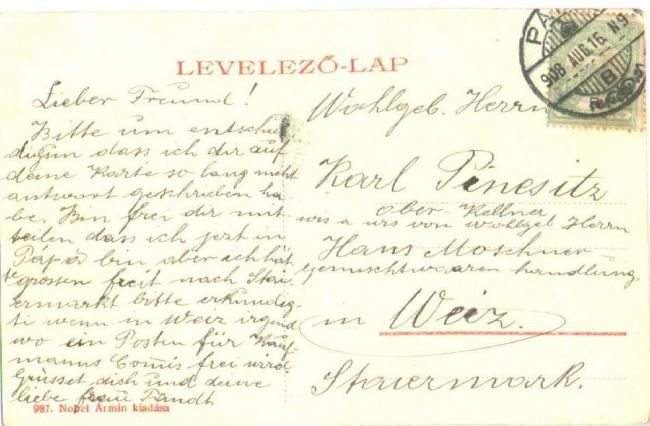 LEVELEZŐ-LAP
908 AUG. 16. N9
B
Lieber Freund!
Bitte um entschu
digun dass ich dir auf
deine Karte so lang nicht
antwort geschrieben ha
be. Bin frei dir mit
teilen dass ich jezt in
Pápa bin aber ich hät
te grossen freit nach Stai
ermarkt bitte erkundig
ti wenn in Weiz irgend
wo ein Posten für Kauf
manns Comis frei wird
Grüsset dich und deine
liebe frau
987. Nobel Ármin kiadása
Wohlgeb. Herrn
Karl Pinesitz
ober Kellner
wis a urs von wohlgeb Herrn
Hans Moschner
gemischtwaaren handlung
in Weiz.
Staiermark.